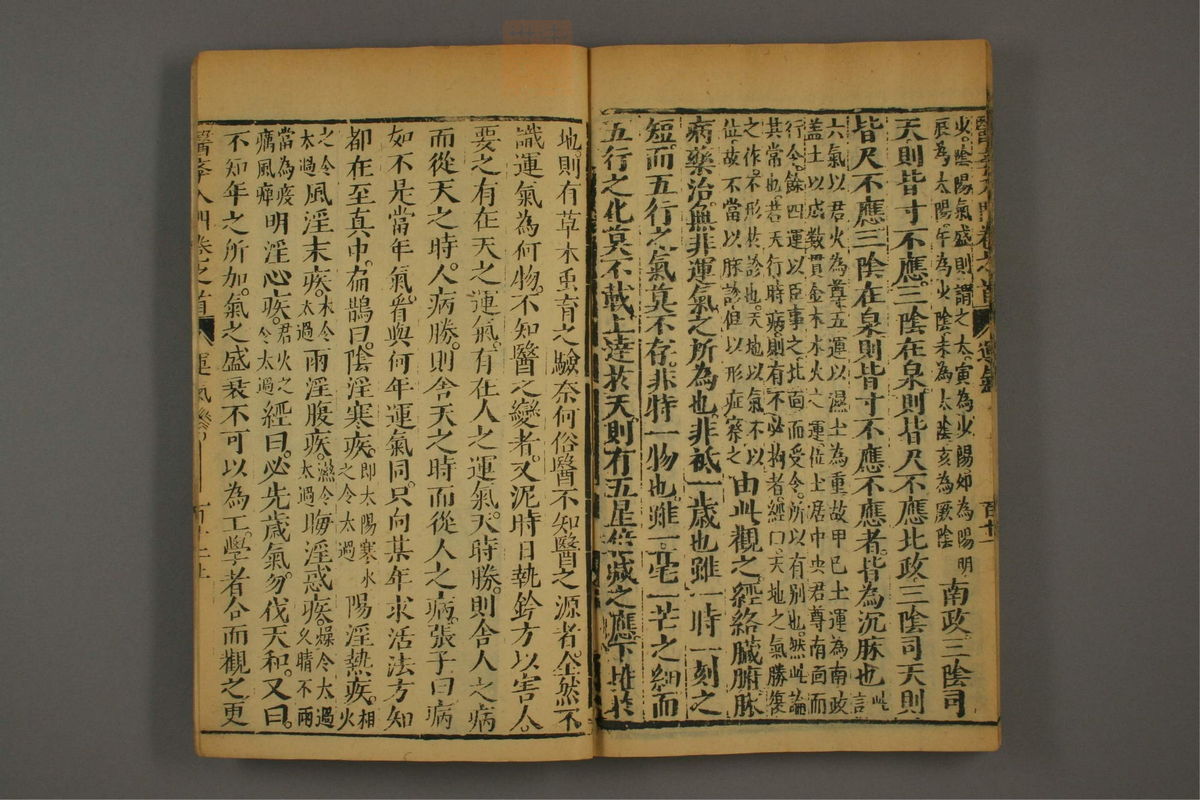 醫學入門卷之首 運氣
火陰陽氣盛則謂之太寅為少陽卯為陽明
辰為太陽午為少陰未為太陰亥為厥陰
南政三陰司
天則皆寸不應三陰在泉則皆尺不應北政三陰司天則
皆尺不應三陰在泉則皆寸不應不應者皆為沉脉也
此言
六氣以君火為尊五運以濕土為重故甲己土運為南政
盖土以成数貫金木水火之運位土居中央君尊南面而
行令餘四運以臣事之北面而受令所以有别也然此論
其常也若天行時病則有不必拘者經曰天地之氣勝復
之作不形於診也天地以氣不以
位故不當以脉診但以形症察之
由此觀之經絡臟腑脉
病藥治無非運氣之所為也非祗一歲也雖一時一刻之
短而五行之氣莫不存非特一物也雖一毫一芒之細而
五行之化莫不載上達於天則有五星倍减之應下推於
地則有草木虫育之驗奈何俗醫不知醫之源者全然不
識運氣為何物不知醫之變者又泥時日執鈐方以害人
要之有在天之運氣有在人之運氣天時勝則舍人之病
而從天之時人病勝則舍天之時而從人之病張子曰病
如不是當年氣看與何年運氣同只向某年求活法方知
都在至真中扁鵲曰陰淫寒疾
即太陽寒水
之令太過
陽淫熱疾
相火
之令
太過
風淫末疾
木令
太過
雨淫腹疾
濕令
太過
晦淫惑疾
燥令太過
久晴不雨
當為疫
癘風瘴
明淫心疾
君火之
令太過
經曰必先歲氣勿伐天和又曰
不知年之所加氣之盛衰不可以為工學者合而觀之更
醫學入門卷之首 運氣